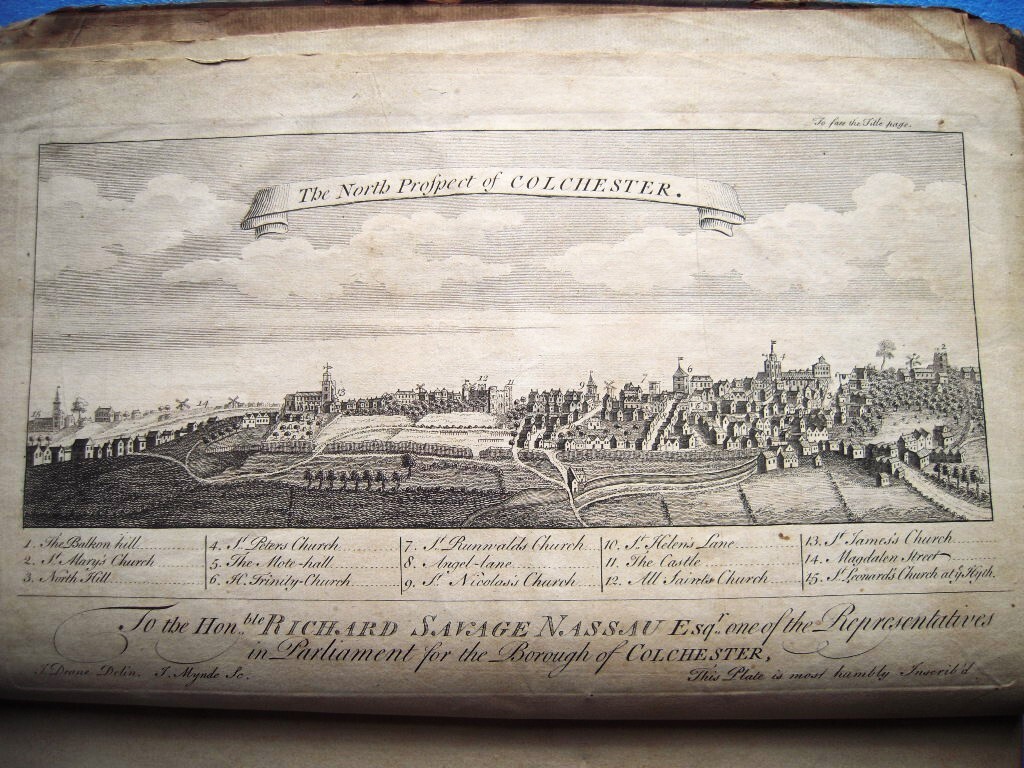 To face the Title page.
The North Proſpect of COLCHESTER.
15
14
13
12
11
9
7
6
4
2
1. The Balkon hill
2. St. Mary's Church
3. North Hill
4. St. Peters Church
5. The Mote-hall
6. H. Trinity-Church
7. St. Runwalds Church
8. Angel-lane
9. St. Nicolas's Church
10. St. Helens Lane
11. The Castle
12. All Saints Church
13. St. James's Church
14. Magdalen Street
15. St. Leonard's Church at ye Hyth.
To the Hon.ble RICHARD SAVAGE NASSAU Esqr. one of the Representatives
in Parliament for the Borough of COLCHESTER,
J. Deane Delin. J. Mynde Sc.
This Plate is most humbly Inscrib'd